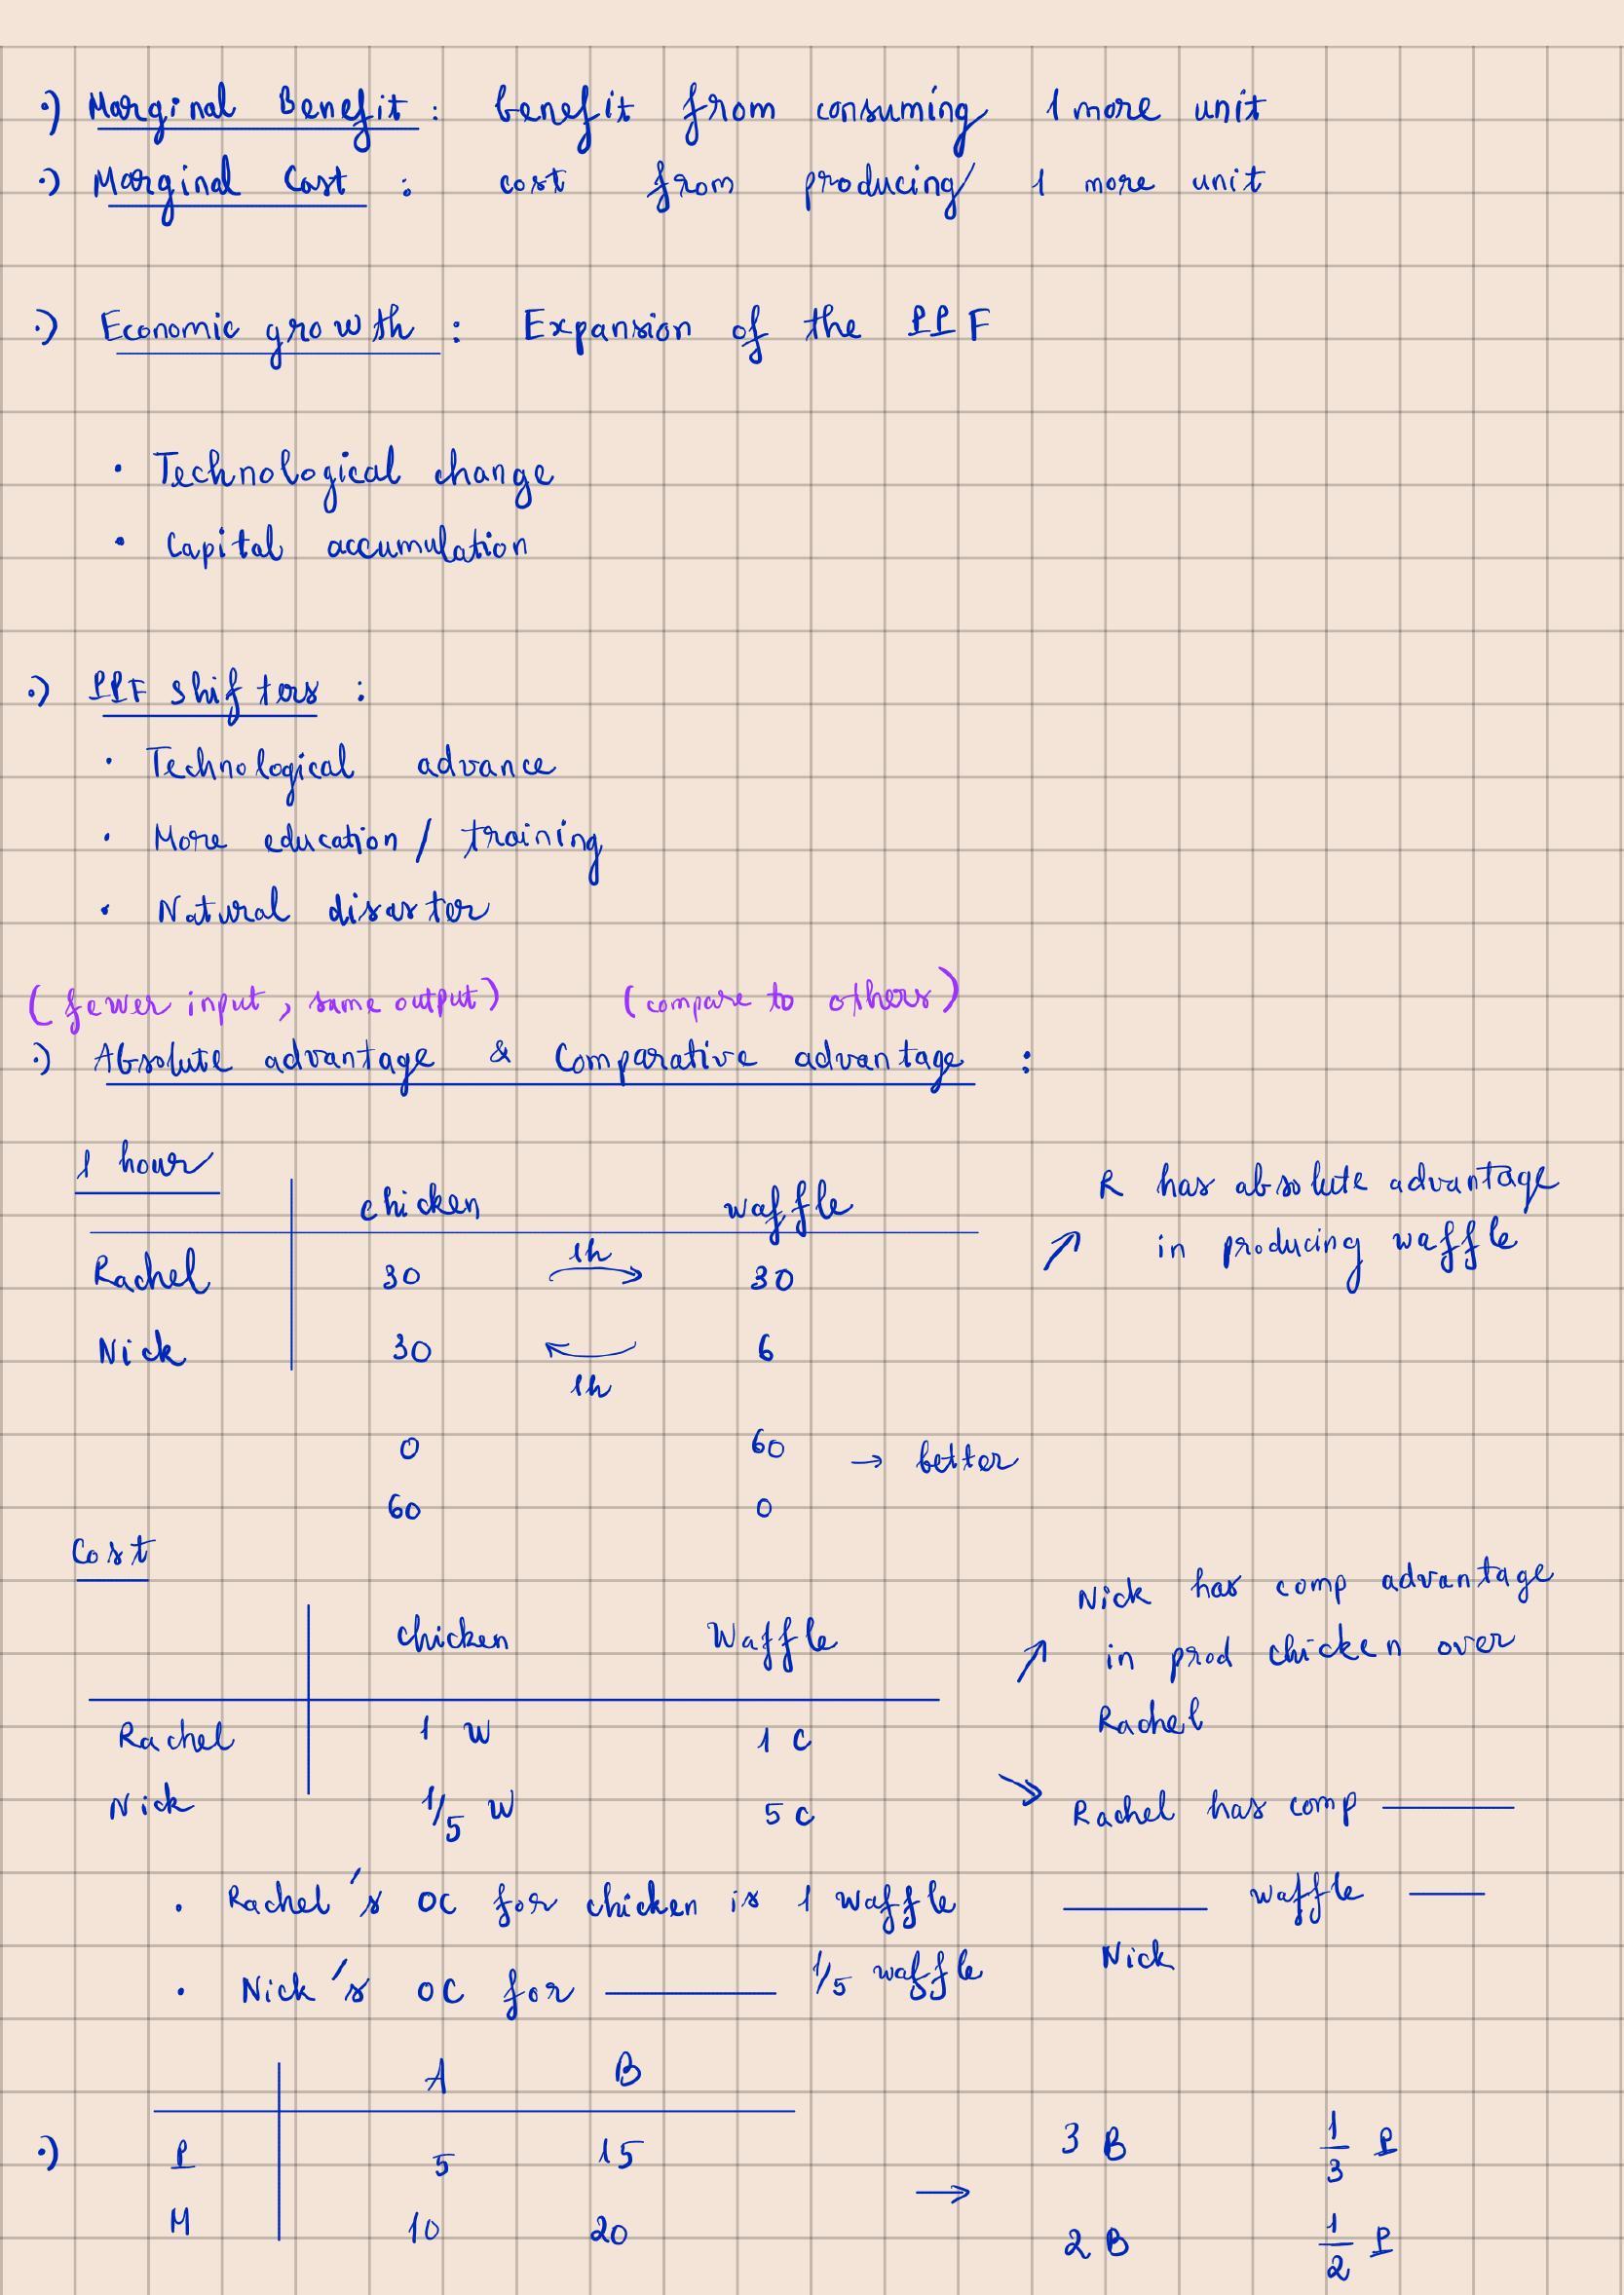 ·) Marginal Benefit : benefit from consuming 1 more unit
·) Marginal Cost : cost from producing 1 more unit
·) Economic growth : Expansion of the PPF
· Technological change
· Capital accumulation
·) PPF shifters :
· Technological advance
· More education / training
· Natural disaster
(fewer input, same output) (compare to others)
·) Absolute advantage & Comparative advantage :
1 hour
chicken waffle
Rachel 30 1h → 30
Nick 30 ← 1h 6
R has absolute advantage
↗ in producing waffle
0 60 → better
60 0
Cost
chicken Waffle
Rachel 1 W 1 C
Nick 1/5 W 5 C
Nick has comp advantage
↗ in prod chicken over
Rachel
↘ Rachel has comp ———
——— waffle ——
Nick
· Rachel's OC for chicken is 1 waffle
· Nick's OC for ——— 1/5 waffle
A B
·) P 5 15 → 3 B 1/3 P
M 10 20 2 B 1/2 P